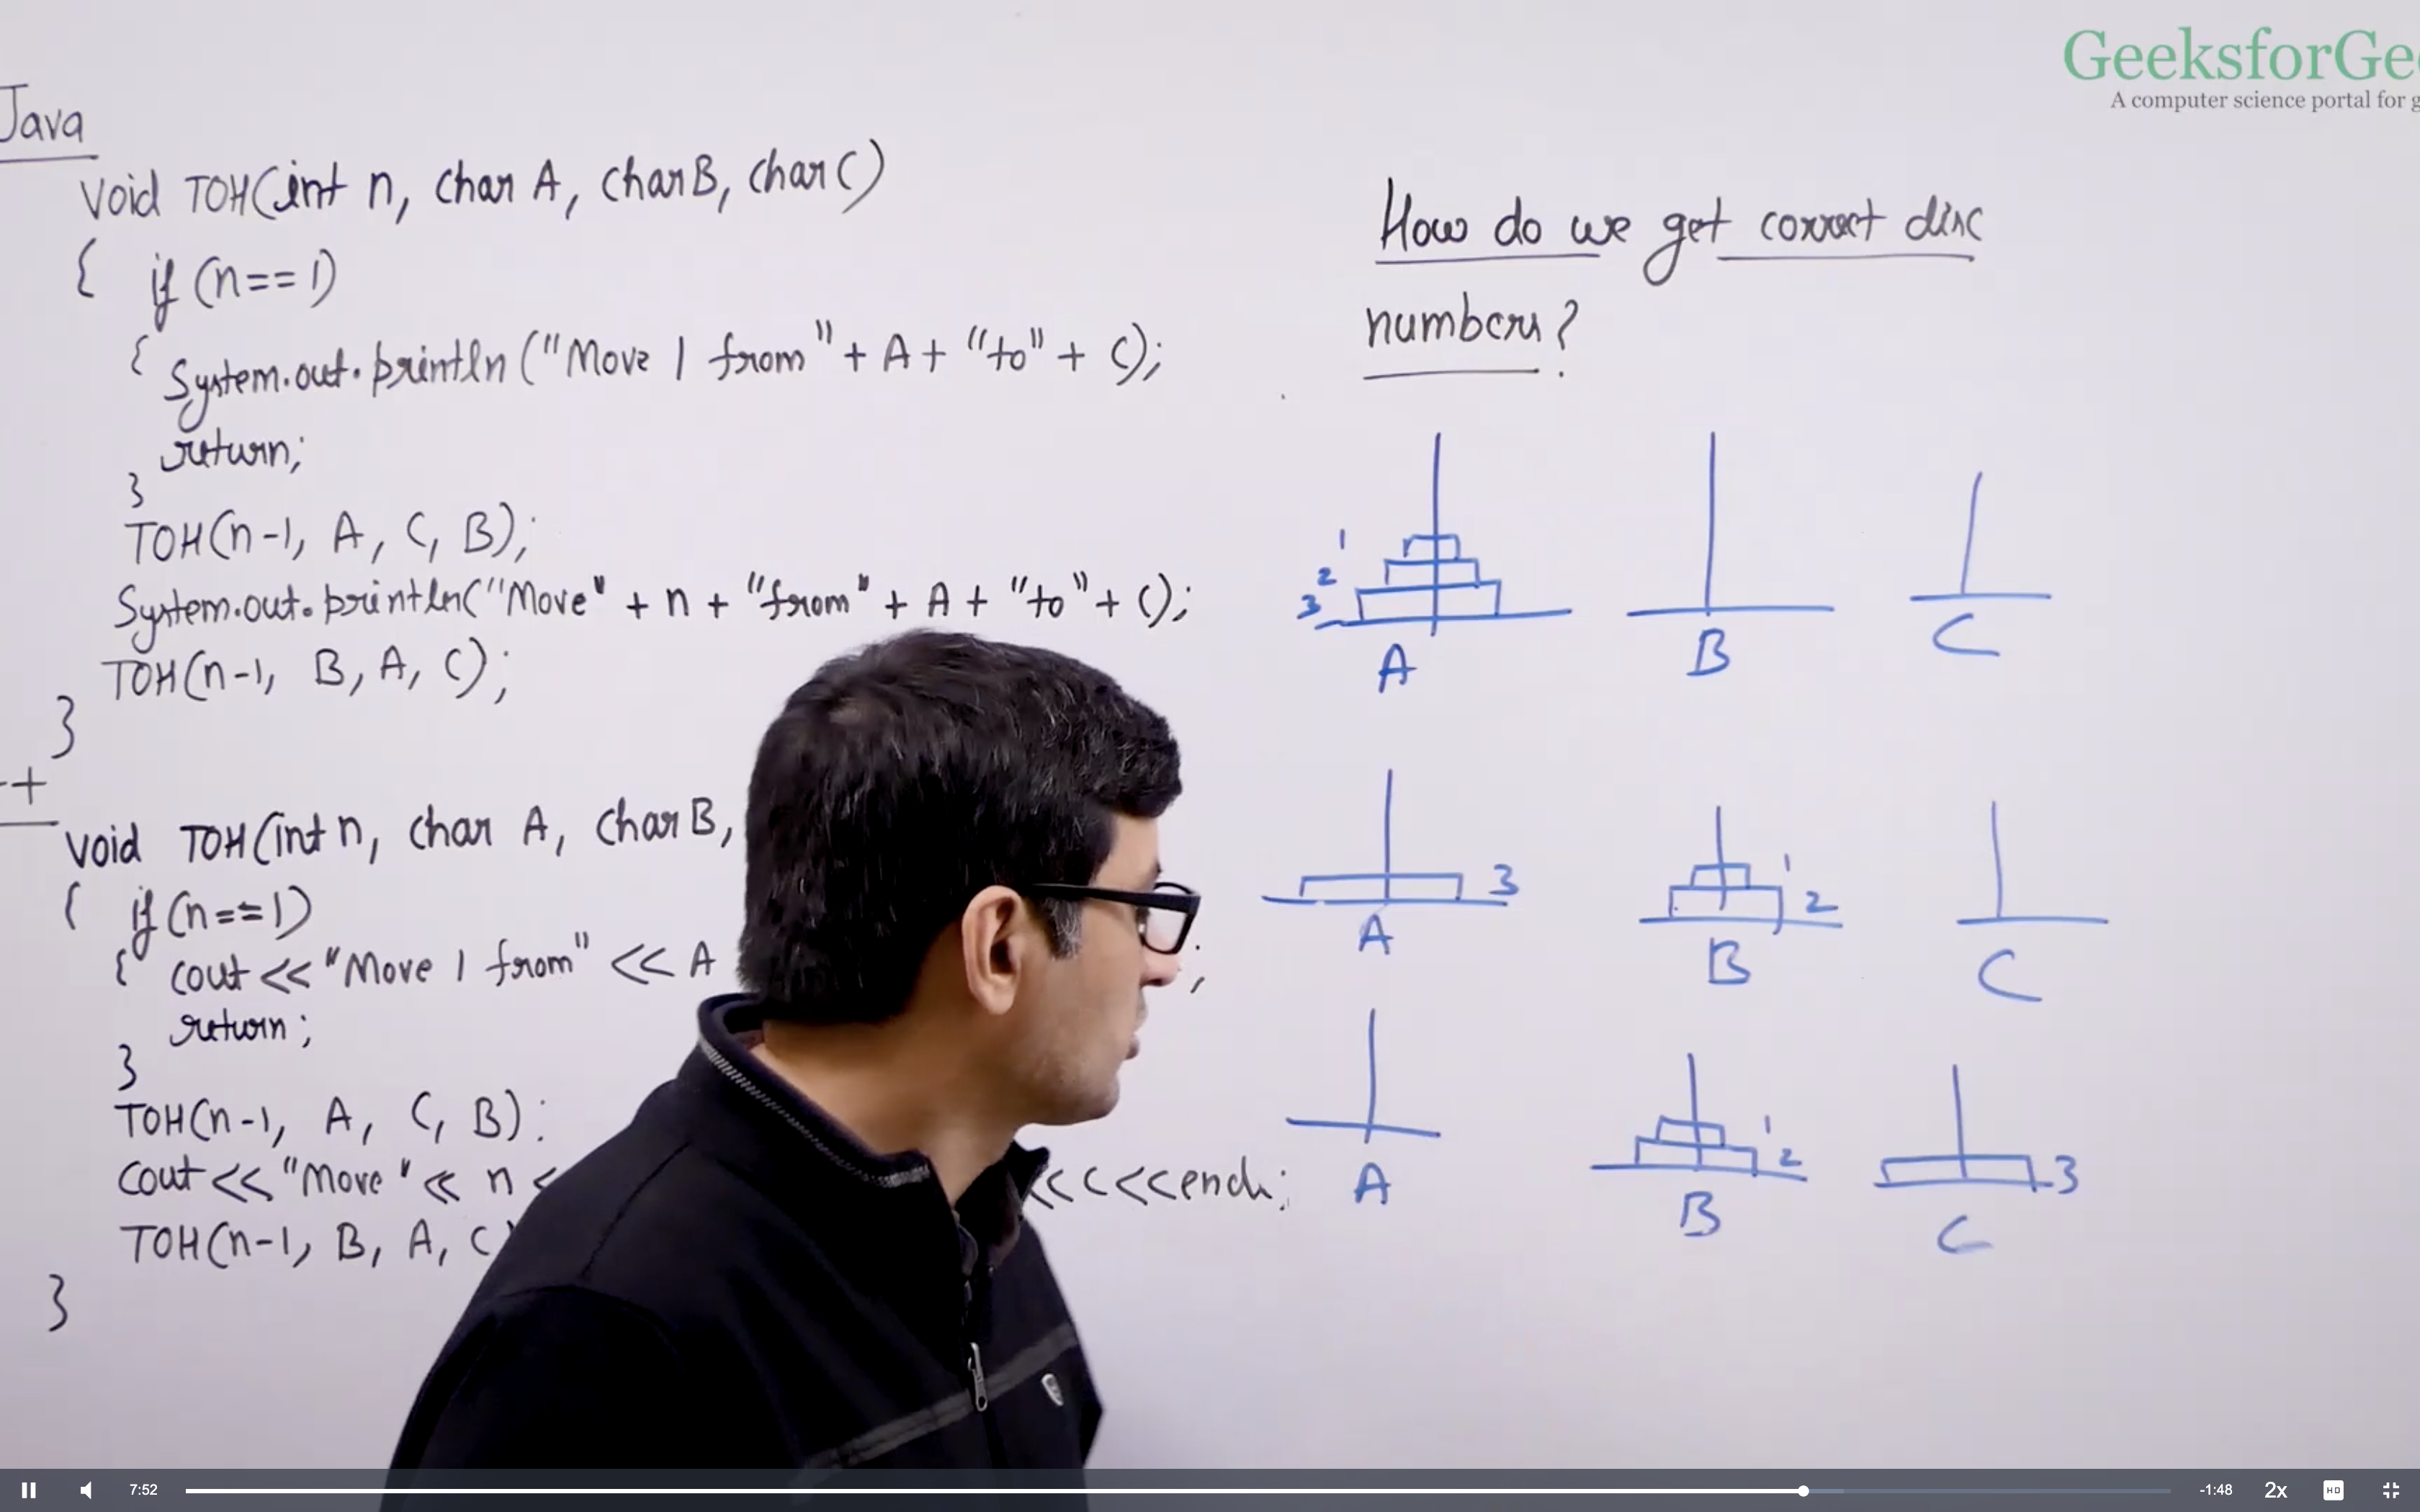 GeeksforGe
A computer science portal for g
Java
void TOH(int n, char A, char B, char C)
{ if (n==1)
{ System.out.println("Move 1 from" + A + "to" + C);
return;
}
TOH(n-1, A, C, B);
System.out.println("Move" + n + "from" + A + "to" + C);
TOH(n-1, B, A, C);
}
+
void TOH(int n, char A, char B,
{ if (n==1)
{ cout << "Move 1 from" << A ;
return;
}
TOH(n-1, A, C, B);
cout << "Move" << n < <<C<<endl;
TOH(n-1, B, A, C
}
How do we get correct disc
numbers?
1
2
3
A B C
3 1
2
A B C
1
2 3
A B C
7:52 -1:48 2x HD